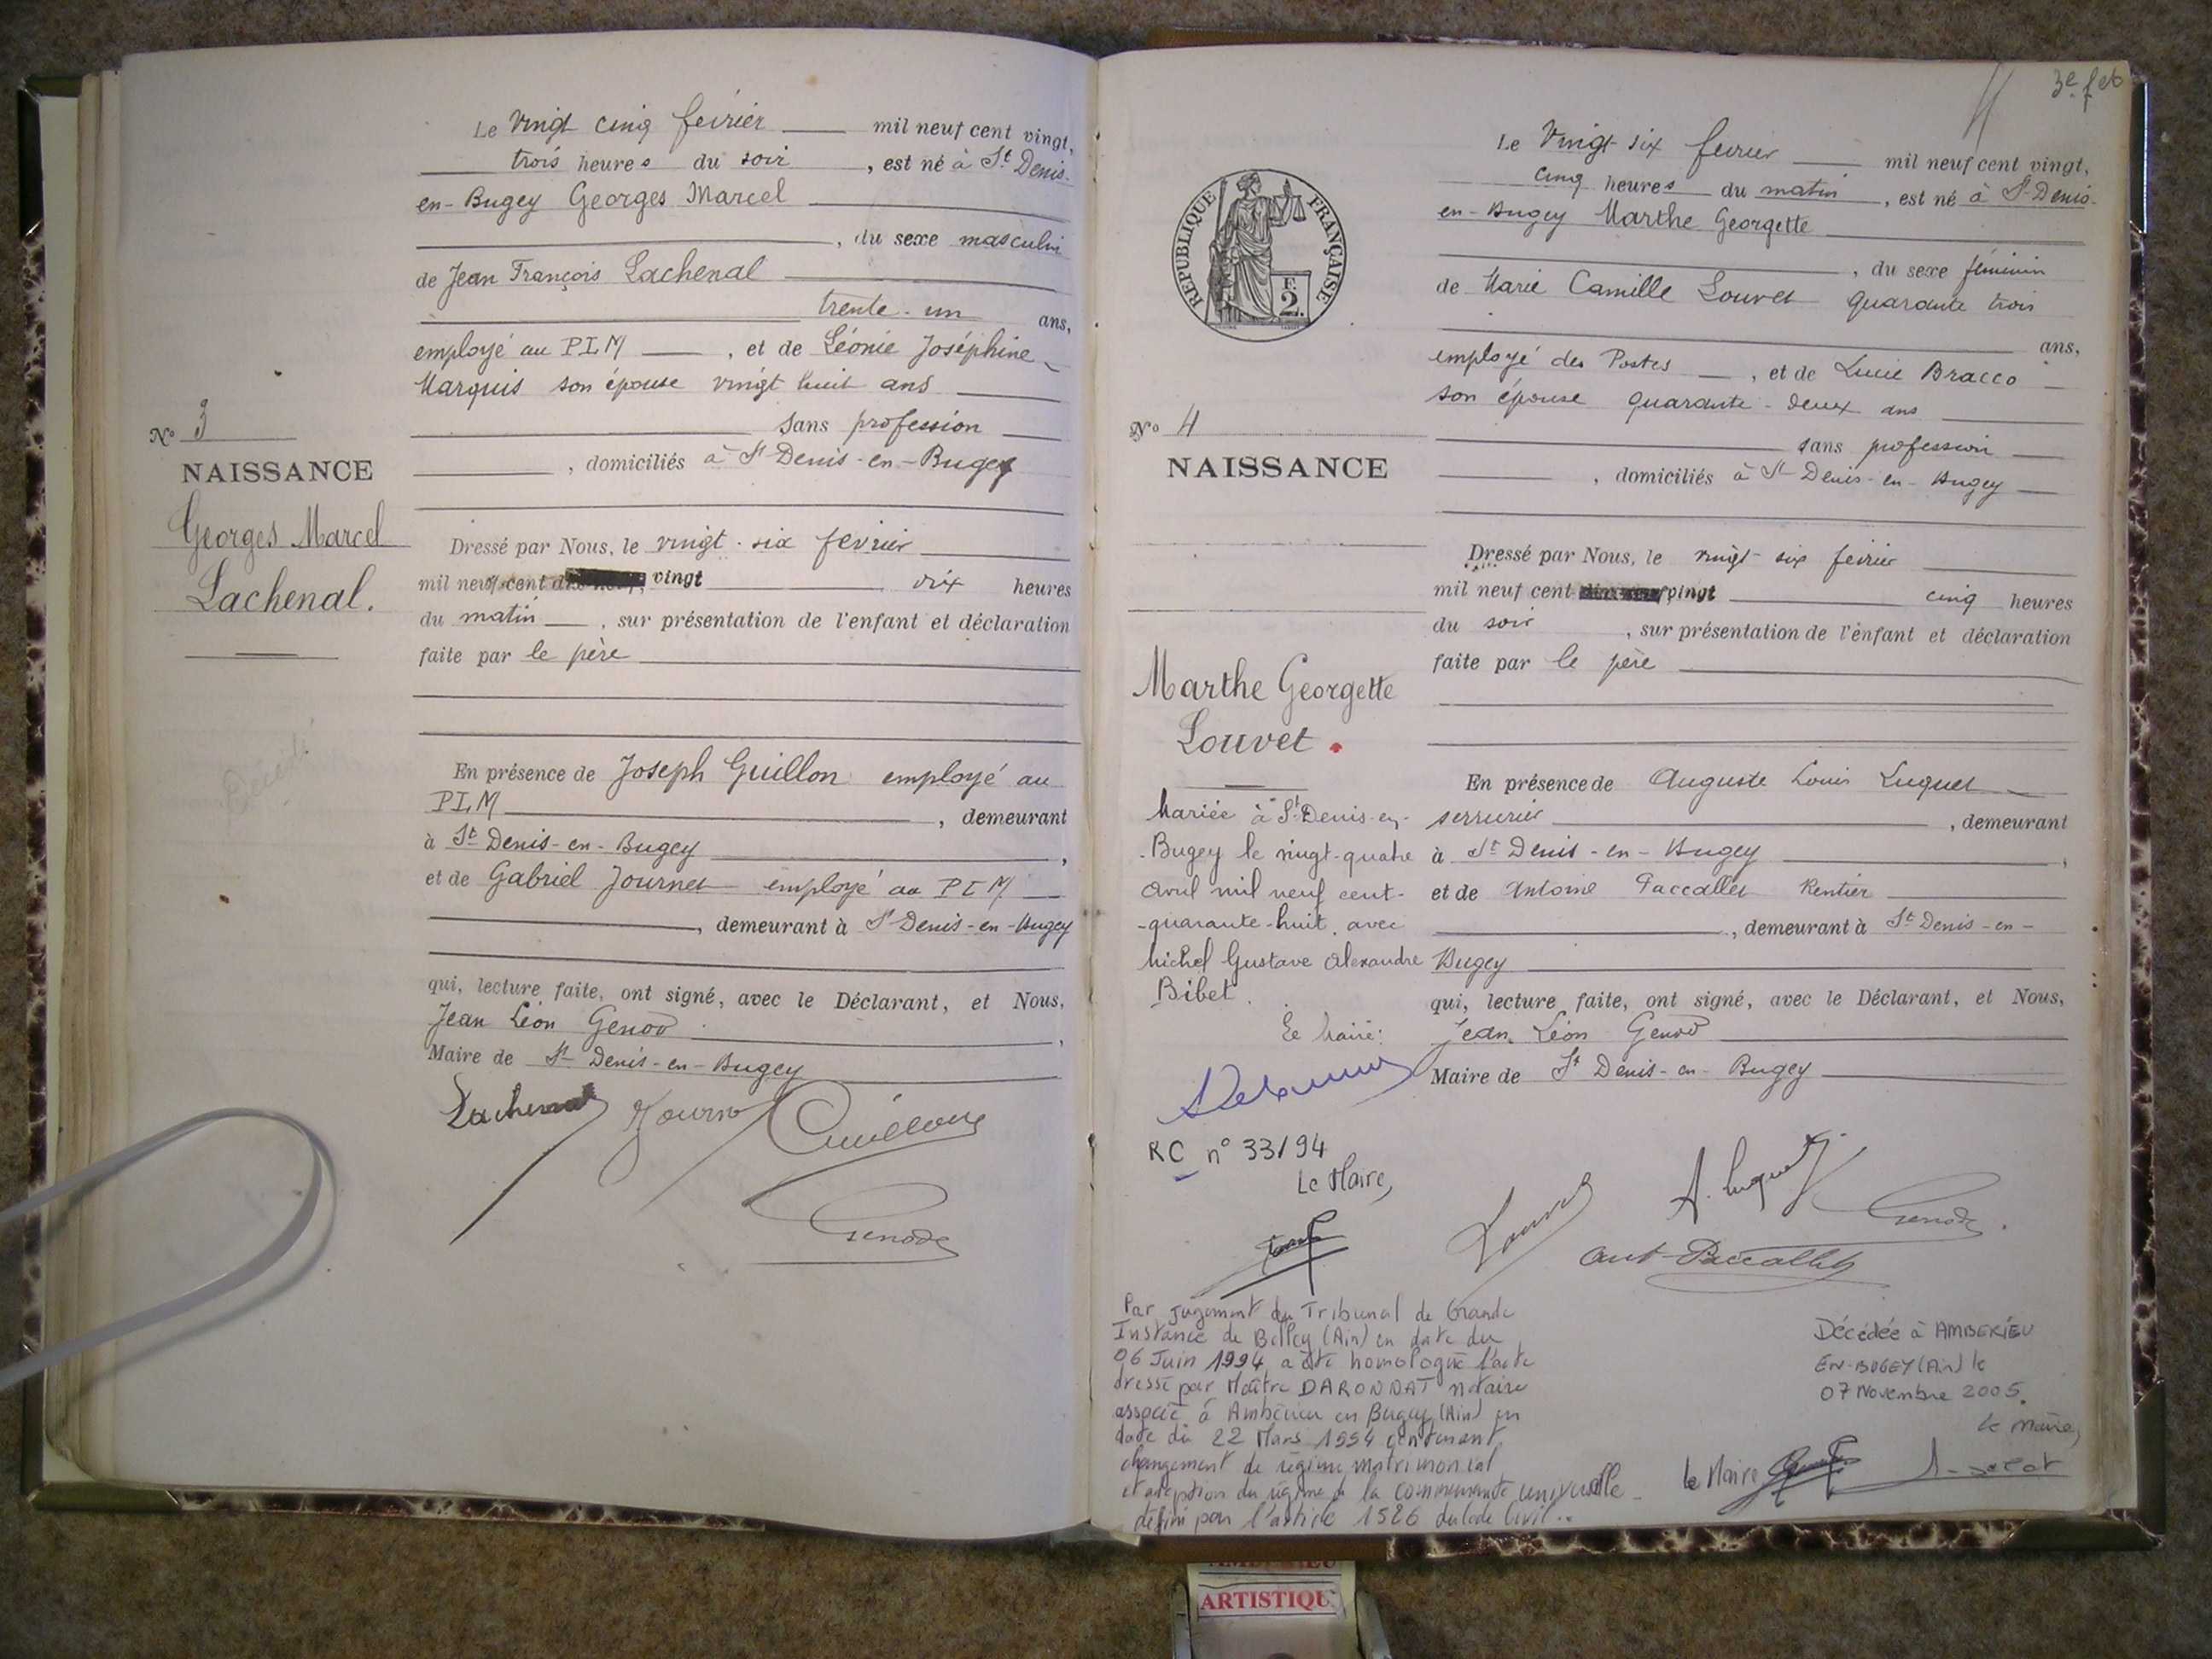 Le vingt cinq février mil neuf cent vingt,
trois heures du soir, est né à St Denis-
en-Bugey Georges Marcel
, du sexe masculin
de Jean François Lachenal
trente-un ans,
employé au PLM, et de Léonie Joséphine
Marquis son épouse vingt huit ans
sans profession
, domiciliés à St Denis-en-Bugey
No 3
NAISSANCE
Georges Marcel
Lachenal.
Décédé
Dressé par Nous, le vingt-six février
mil neuf cent vingt dix heures
du matin, sur présentation de l'enfant et déclaration
faite par le père
En présence de Joseph Guillon employé au
PLM, demeurant
à St Denis-en-Bugey,
et de Gabriel Journet employé au PLM
, demeurant à St Denis-en-Bugey
qui, lecture faite, ont signé, avec le Déclarant, et Nous,
Jean Léon Genod,
Maire de St Denis-en-Bugey
Lachenal Journet Guillon
Genod
3e fet
Le Vingt-six février mil neuf cent vingt,
cinq heures du matin, est né à St-Denis-
en-Bugey Marthe Georgette
, du sexe féminin
de Marie Camille Louvet quarante trois
ans,
employé des Postes, et de Lucie Bracco
son épouse quarante-deux ans
sans profession
, domiciliés à St Denis-en-Bugey
RÉPUBLIQUE FRANÇAISE
F.
2.
No 4
NAISSANCE
Marthe Georgette
Louvet.
Dressé par Nous, le vingt-six février
mil neuf cent vingt cinq heures
du soir, sur présentation de l'enfant et déclaration
faite par le père
En présence de Auguste Louis Luquet
serrurier, demeurant
à St Denis-en-Bugey,
et de Antoine Paccallet Rentier
, demeurant à St Denis-en-
Bugey
qui, lecture faite, ont signé, avec le Déclarant, et Nous,
Jean Léon Genod
Maire de St Denis-en-Bugey
Louvet A. Luquet Genod
Ant Paccallet
Mariée à St-Denis-en-
Bugey le vingt-quatre
avril mil neuf cent-
quarante-huit avec
Michel Gustave Alexandre
Bibet.
Le Maire:
RC n° 33/94
Le Maire,
Par jugement du Tribunal de Grande
Instance de Belley (Ain) en date du
06 Juin 1994 a été homologué l'acte
dressé par Maître DARONNAT notaire
associé à Ambérieu en Bugey (Ain) en
date du 22 Mars 1994 contenant
changement de régime matrimonial
et adoption du régime de la communauté universelle
défini par l'article 1526 du Code Civil..
Le Maire
Décédée à AMBERIEU
EN-BUGEY (Ain) le
07 Novembre 2005.
Le Maire,
ARTISTIQU